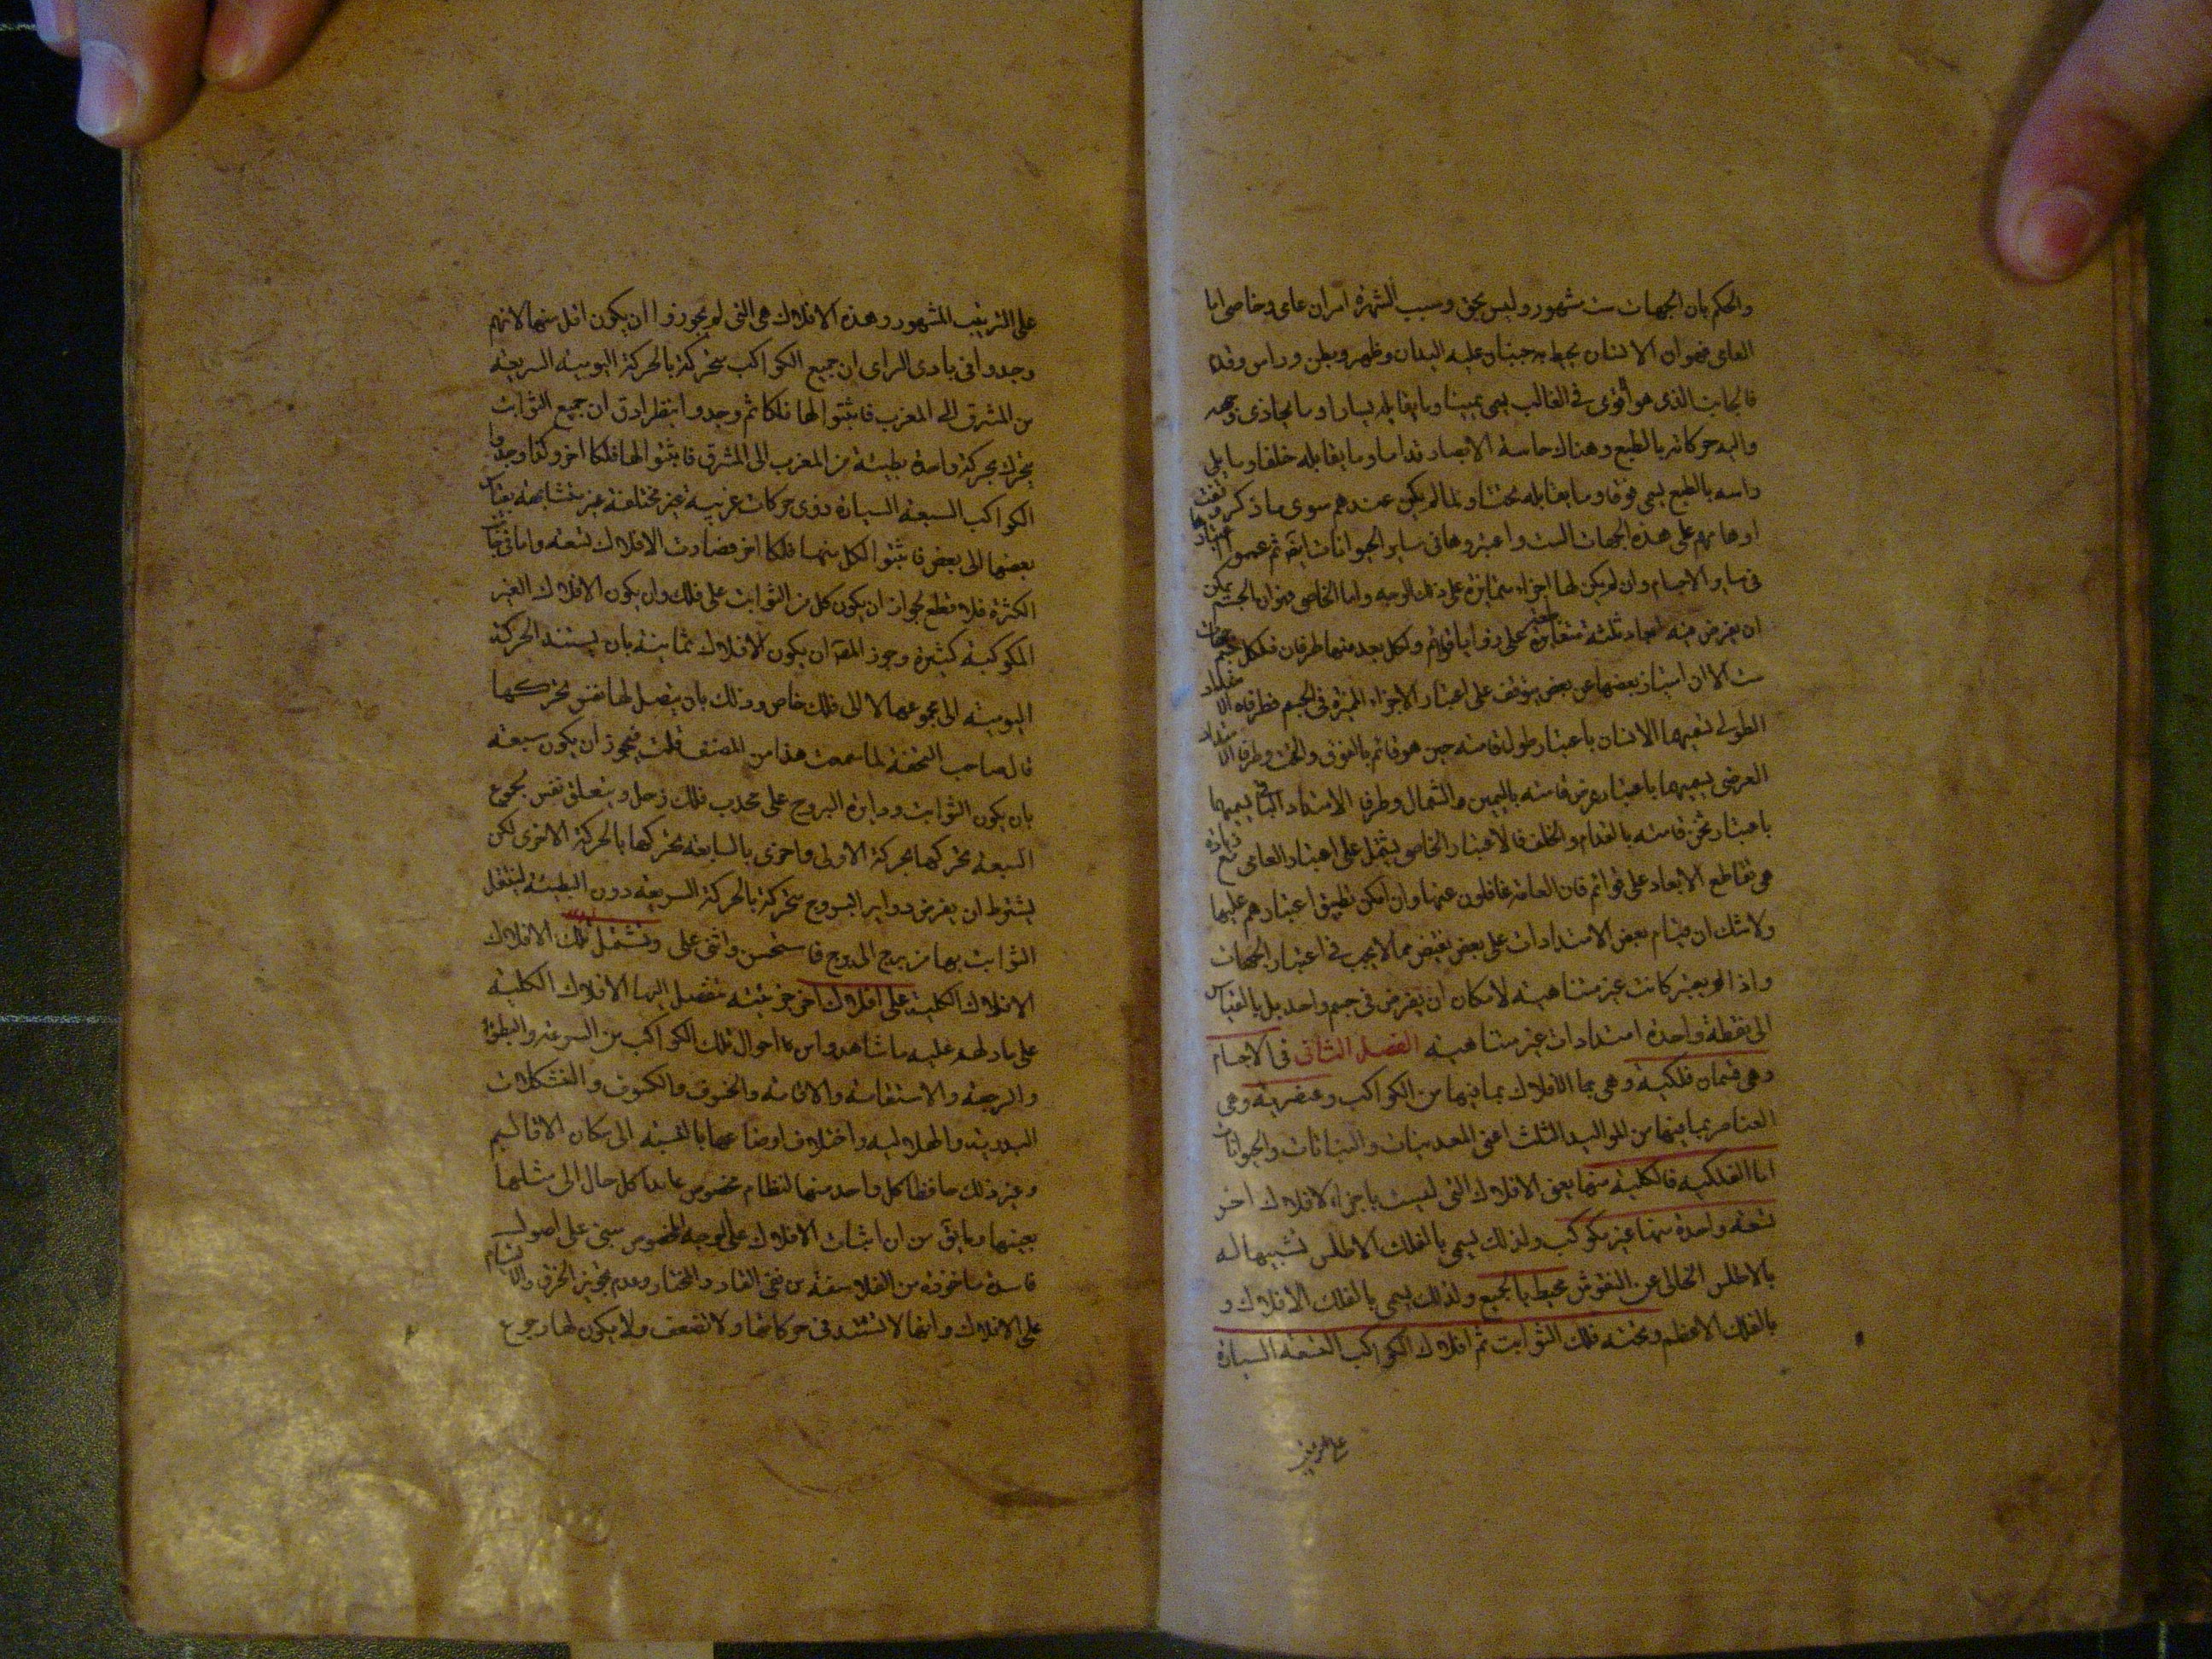 والحكم بان الجهات ست مشهور وليس بحق وسبب الشهرة امران عامى وخاصى اما
العامى فهو ان الانسان يحيط به جنبان عليه اليدان وظهر وبطن وراس وقدم
فالجانب الذى هو اقوى فى الغالب يسمى يمينا وما يقابله يسارا وما يحاذى وجهه
واليه حركاته بالطبع وهناك حاسة الابصار قداما وما يقابله خلفا وما يلى
راسه بالطبع يسمى فوقا وما يقابله تحتا ولما لم يكن عندهم سوى ما ذكر وقفت
اوهامهم على هذه الجهات الست واعتبروها فى ساير الحيوانات ايضا ثم عمموا اعتبارها
فى ساير الاجسام وان لم يكن لها اجزاء متمايزة على ذلك الوجه واما الخاصى فهو ان الجسم يمكن
ان يفرض فيه ابعاد ثلثة متقاطعة على زوايا قوائم ولكل بعد منها طرفان فلكل جسم جهات
ست الا ان امتياز بعضها عن بعض يتوقف على اعتبار الاجزاء المتميزة فى الجسم فطرفا الامتداد
الطولى يسميهما الانسان باعتبار طول قامته حين هو قائم بالفوق والتحت وطرفا الامتداد
العرضى يسميهما باعتبار عرض قامته باليمين والشمال وطرفا الامتداد الباقى يسميهما
باعتبار ثخن قامته بالقدام والخلف فالاعتبار الخاصى يشتمل على اعتبار العامى مع زيادة
هى تقاطع الابعاد على قوائم فان العامة غافلون عنها وان امكن تطبيق اعتبارهم عليها
ولا شك ان قيام بعض الامتدادات على بعض مما لا يجب فى اعتبار الجهات
واذا لم يعتبر كانت غير متناهية لامكان ان يفرض فى جسم واحد بل بالقياس
الى نقطة واحدة امتدادات غير متناهية الفصل الثانى فى الاجسام
وهى قسمان فلكية وهى الافلاك بما فيها من الكواكب وعنصرية وهى
العناصر بما فيها من المواليد الثلث اعنى المعدنيات والنباتات والحيوانات
اما الفلكية فالكلية منها يعنى الافلاك التى ليست باجزاء لافلاك اخر
تسعة واحدة منها غير مكوكب ولذلك يسمى بالفلك الاطلس تشبيها له
بالاطلس الخالى عن النقوش محيط بالجميع ولذلك يسمى بالفلك الافلاك و
بالفلك الاعظم وتحته فلك الثوابت ثم افلاك الكواكب السبعة السيارة
على الترتيب
على الترتيب المشهور وهذه الافلاك هى التى لم يجوزوا ان يكون اقل منها لانهم
وجدوا فى بادى الراى ان جميع الكواكب متحركة بالحركة اليومية السريعة
من المشرق الى المغرب فاثبتوا لها فلكا ثم وجدوا بنظر ادق ان جميع الثوابت
يتحرك بحركة واحدة بطيئة من المغرب الى المشرق فاثبتوا لها فلكا اخر وكذا وجدوا
الكواكب السبعة السيارة ذوى حركات غربية غير مختلفة غير متشابهة بقياس
بعضها الى بعض فاثبتوا لكل منها فلكا اخر فصارت الافلاك تسعة واما فى جانب
الكثرة فلا قطع لجواز ان يكون كل من الثوابت على فلك وان يكون الافلاك الغير
المكوكبة كثيرة وجوز المص ان يكون الافلاك ثمانية بان يستند الحركة
اليومية الى مجموعها لا الى فلك خاص وذلك بان يتصل لها نفس تحركها
قال صاحب التحفة لما سمعت هذا من المصنف قلت فيجوز ان يكون سبعة
بان يكون الثوابت ودايرة البروج على محدب فلك زحل ويتعلق نفس بمجموع
السبعة تحركها بحركة الاولى واخرى بالسابعة تحركها بالحركة الاخرى لكن
بشرط ان يفرض دواير البروج متحركة بالحركة السريعة دون البطيئة لينتقل
الثوابت بها من برج الى برج فاستحسن واثنى على وتشتمل تلك الافلاك
الافلاك الكلية على افلاك اخر جزئية تنفصل اليها الافلاك الكلية
على ما دلهم عليه ما شاهدوا من احوال تلك الكواكب من السرعة والبطؤ
والرجعة والاستقامة والاقامة والخسوف والكسوف والتشكلات
البدرية والهلالية واختلاف اوضاعها بالنسبة الى سكان الاقاليم
وغير ذلك حافظا كل واحد منها لنظام مخصوص عايدا كل حال الى مثلها
بعينها وما يق من ان اثبات الافلاك على الوجه المخصوص مبنى على اصول
فاسدة ماخوذة من الفلاسفة من نفى القادر المختار وعدم تجويز الخرق والالتيام
على الافلاك وانها لا تشتد فى حركاتها ولا تضعف ولا يكون لها رجوع